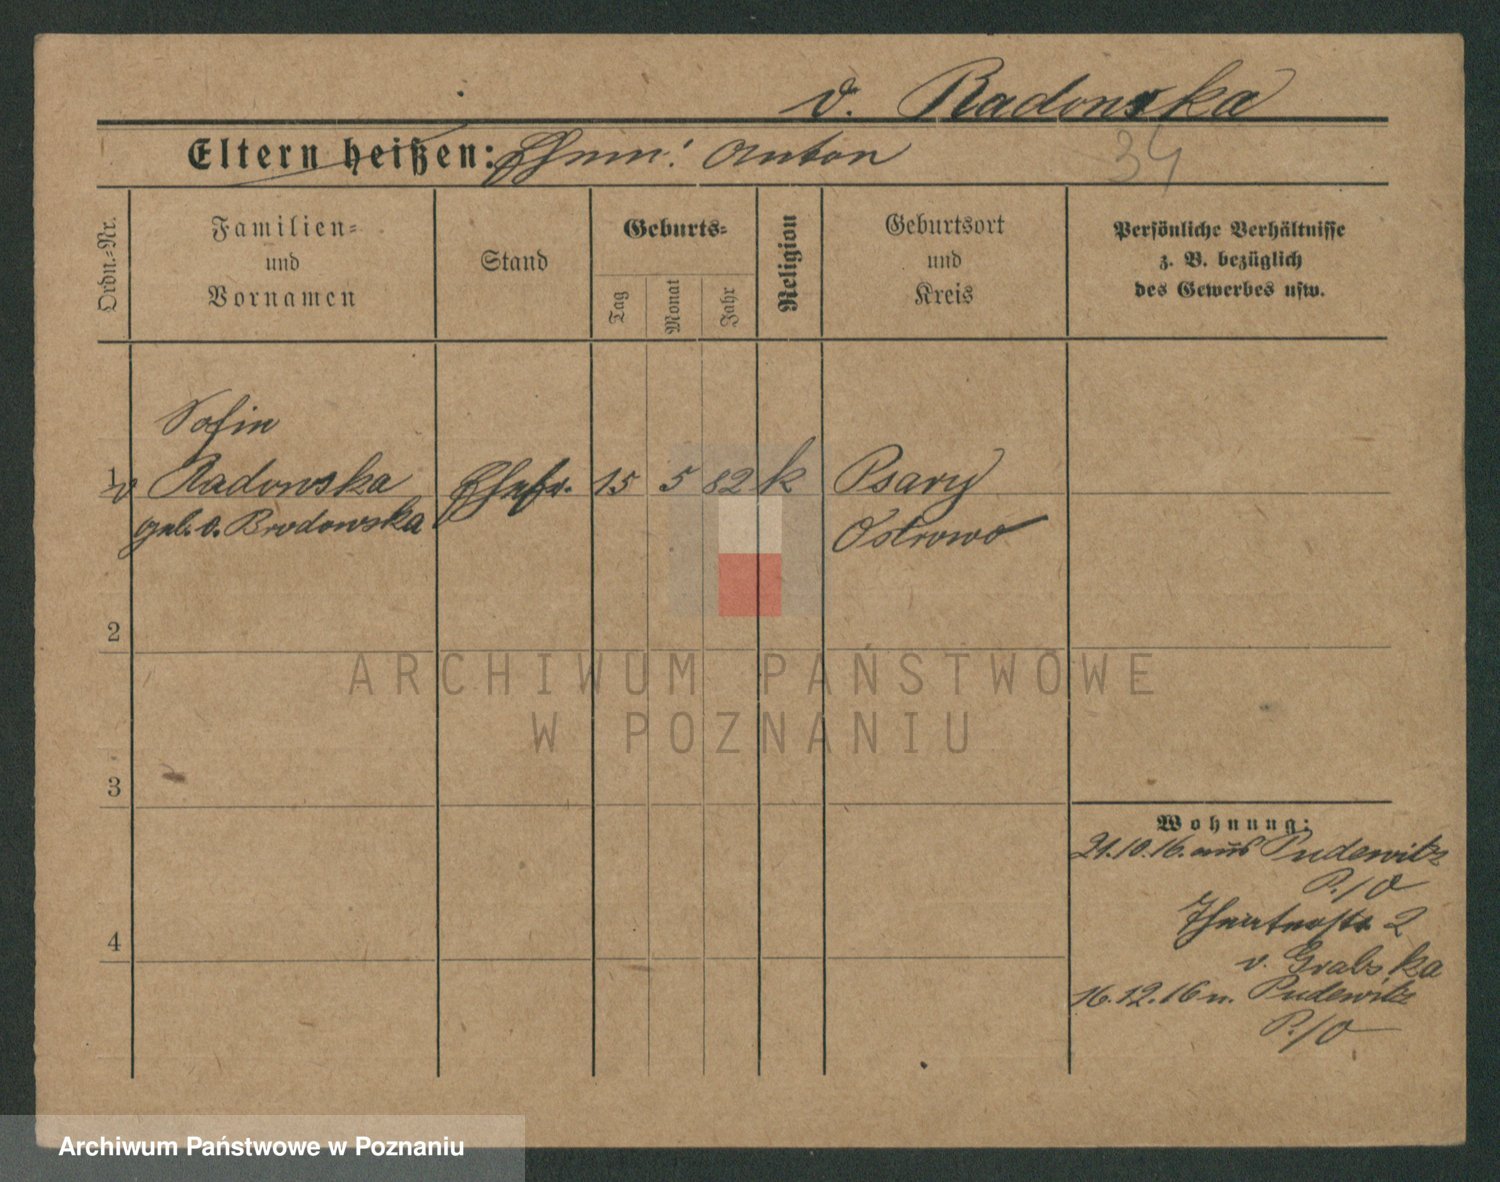 v. Radonska
Eltern heißen: Ehem: Anton
34
Ordn.-Nr.
Familien-
und
Vornamen
Stand
Geburts-
Tag
Monat
Jahr
Religion
Geburtsort
und
Kreis
Persönliche Verhältnisse
z. B. bezüglich
des Gewerbes usw.
Sofie
1 v Radonska Ehefr. 15 5 82 k Psary
geb. v. Brodowska Ostrowo
2
ARCHIWUM PAŃSTWOWE
W POZNANIU
3
Wohnung:
21.10.16. aus Pudewitz
P./O
4
Theaterstr. 2
v. Grabska
16.12.16 n. Pudewitz
P./O
Archiwum Państwowe w Poznaniu